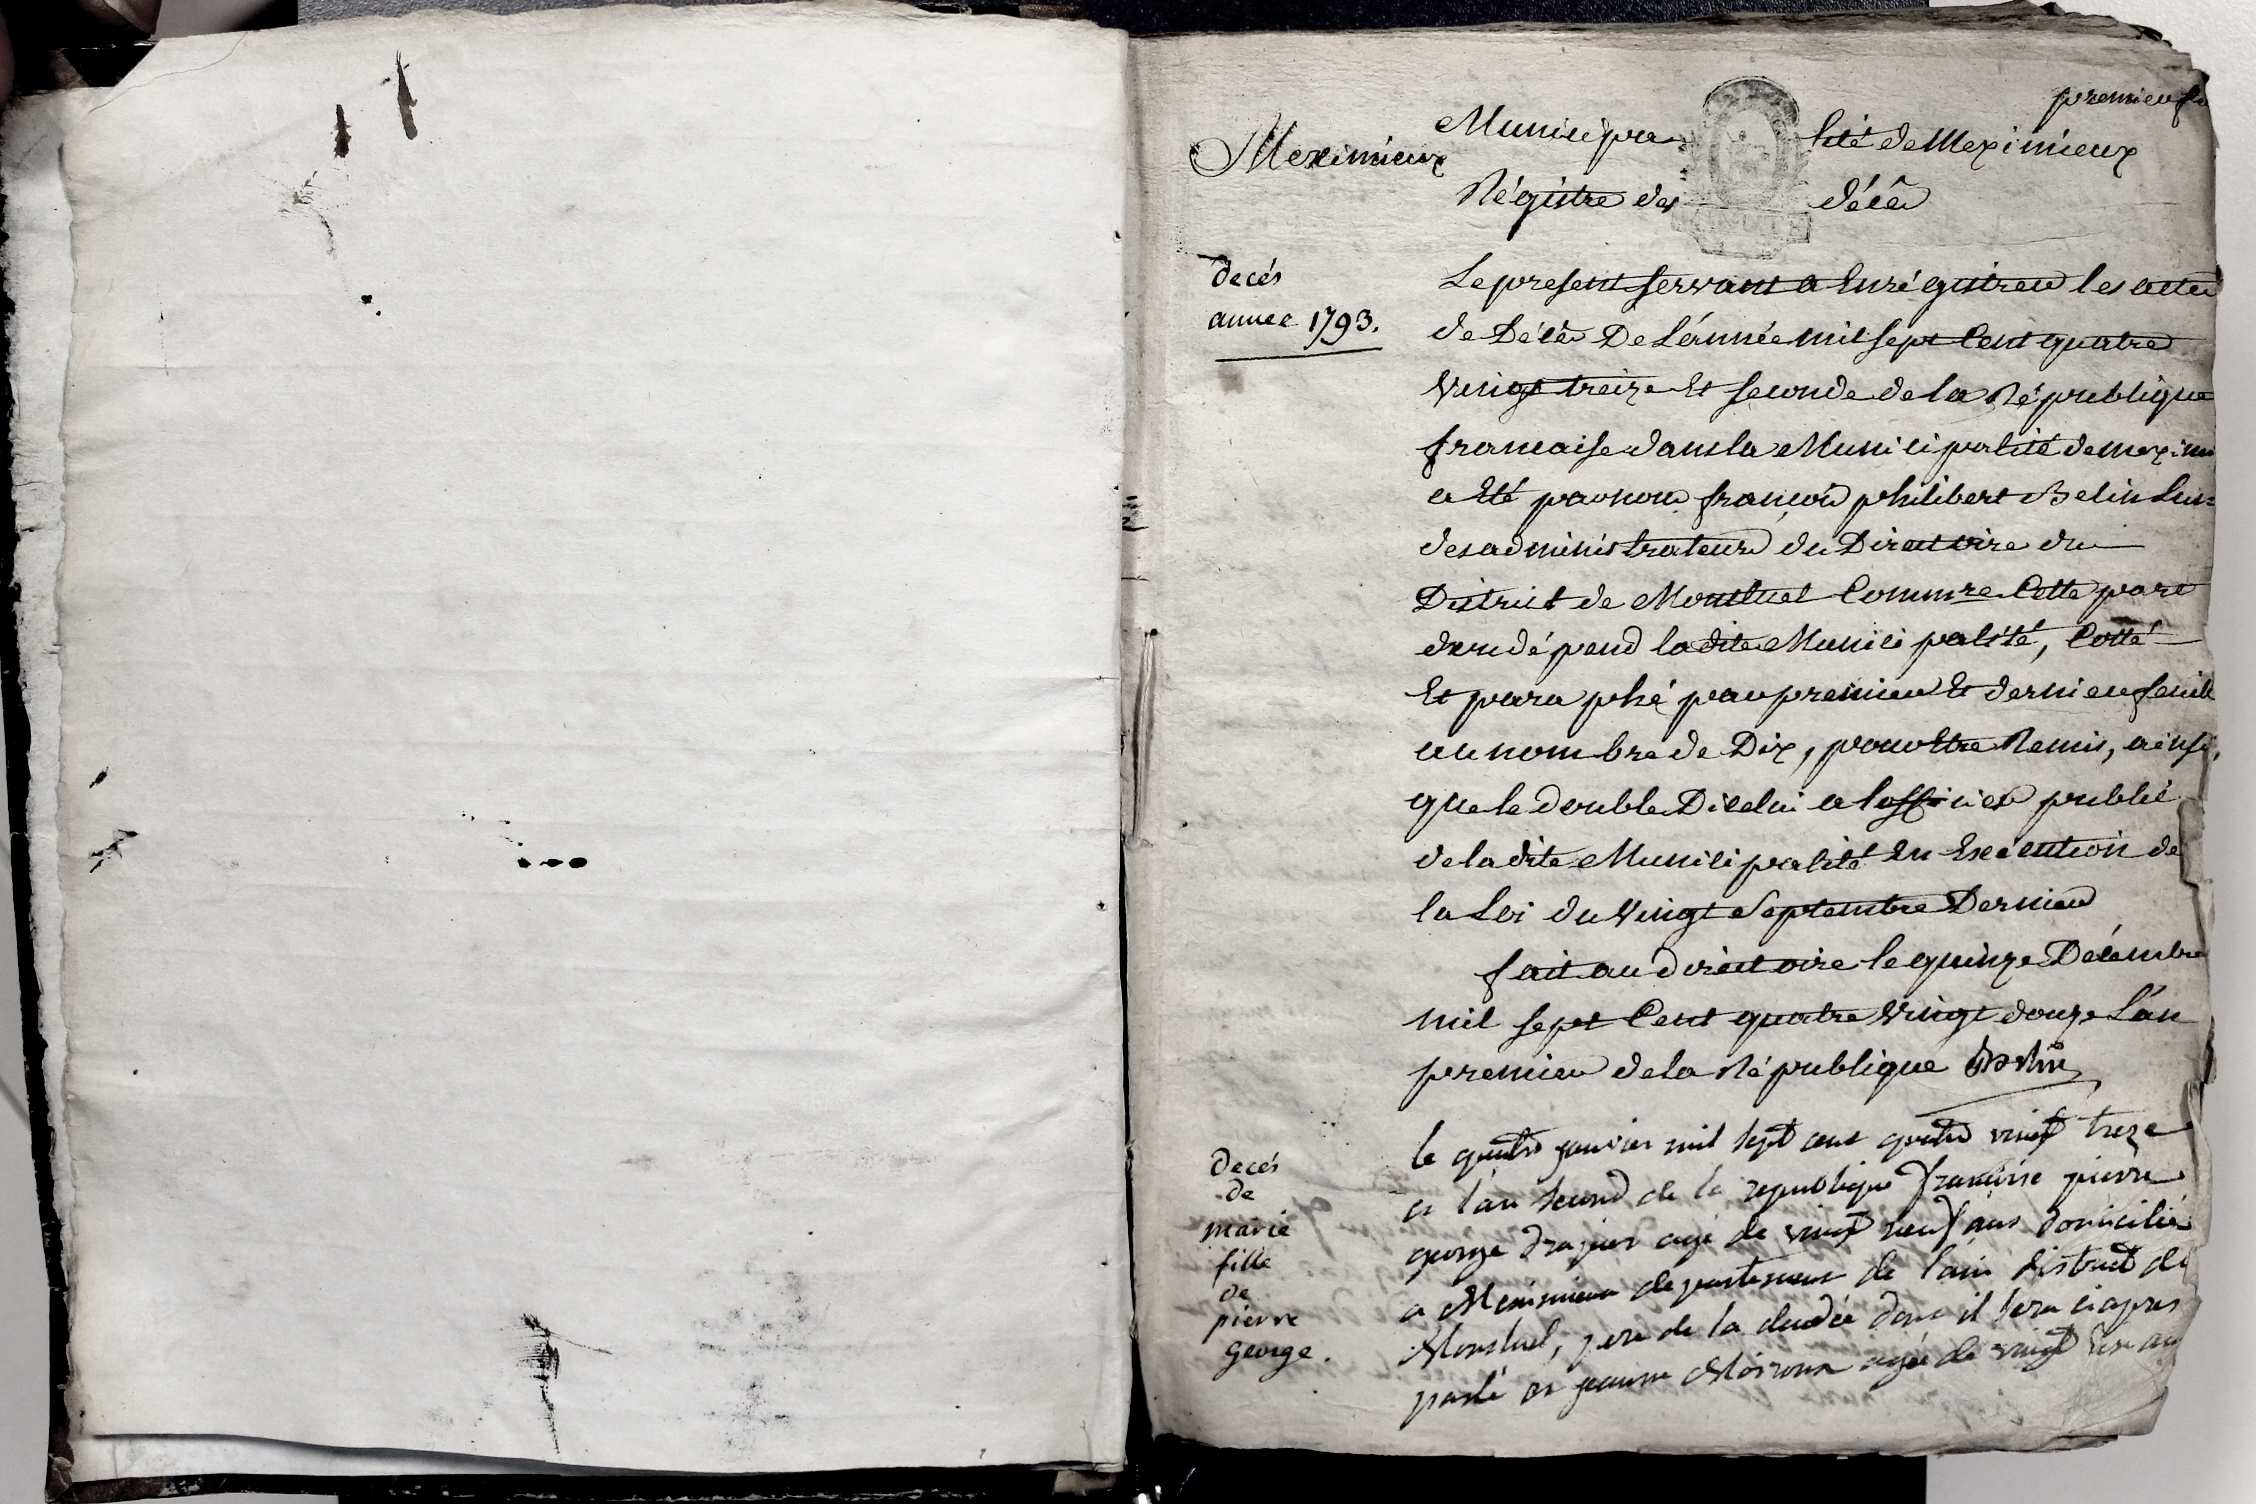 premier f
Meximieux
Municipalité de Meximieux
Régistre des décès
decés
année 1793.
Le present servant a Enrégistrer les actes
de Décès De L'année mil sept Cent quatre
Vingt treize Et seconde de la République
francaise dans la Municipalité de meximi
a Eté par nous françois philibert Belin L'un
des administrateurs du Directoire du
District de Montluel Commre Cette part
dou dépend ladite Municipalité, Cotté
Et paraphé par premier Et dernier feuill
au nombre de Dix, pour Etre Remis, ainsi
que le double Dicelui a lofficier public
de la dite Municipalité En Execution de
la Loi du Vingt Septembre Dernier
fait au directoire le quinze Décembre
mil sept Cent quatre Vingt douze L'an
premier de la République Belin
decés
de
marie
fille
de
pierre
george.
le quatre janvier mil sept cent quatre vingt treze
et l'an second de la republique francoise pierre
george age de vingt neuf ans domicilié
a Meximieux departement de lain district de
Montluel, pere de la decedée dont il sera ci apres
parlé et jeanne agée de vingt